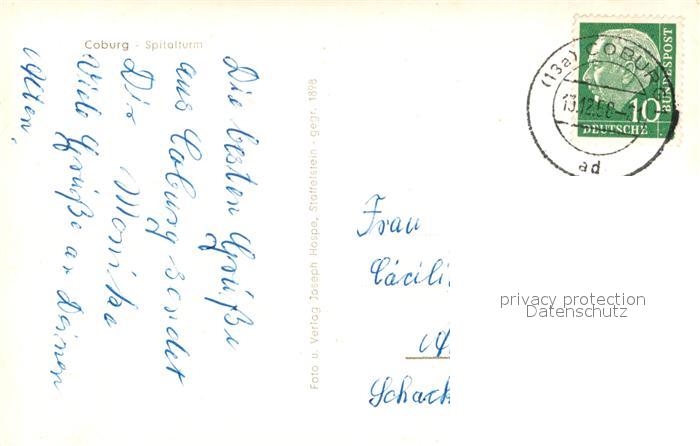 Coburg - Spitalturm
Die besten Grüße
aus Coburg sendet
Dir Monika
Viele Grüße an Deinen
Alten.
Foto u. Verlag Joseph Hospe, Staffelstein - gegr. 1898
(13a) COBURG
13.12.58
ad
10
DEUTSCHE
BUNDESPOST
Frau
Cäcili
Schack
privacy protection
Datenschutz